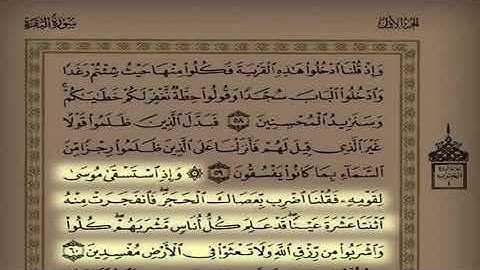 سُورَةُ البَقَرَةِ
الجُزْءُ الأَوَّلُ
وَإِذْ قُلْنَا ادْخُلُوا هَٰذِهِ الْقَرْيَةَ فَكُلُوا مِنْهَا حَيْثُ شِئْتُمْ رَغَدًا
وَادْخُلُوا الْبَابَ سُجَّدًا وَقُولُوا حِطَّةٌ نَّغْفِرْ لَكُمْ خَطَايَاكُمْ
وَسَنَزِيدُ الْمُحْسِنِينَ ٥٨ فَبَدَّلَ الَّذِينَ ظَلَمُوا قَوْلًا
غَيْرَ الَّذِي قِيلَ لَهُمْ فَأَنزَلْنَا عَلَى الَّذِينَ ظَلَمُوا رِجْزًا مِّنَ
السَّمَاءِ بِمَا كَانُوا يَفْسُقُونَ ٥٩ ۞ وَإِذِ اسْتَسْقَىٰ مُوسَىٰ
لِقَوْمِهِ فَقُلْنَا اضْرِب بِّعَصَاكَ الْحَجَرَ فَانفَجَرَتْ مِنْهُ
اثْنَتَا عَشْرَةَ عَيْنًا قَدْ عَلِمَ كُلُّ أُنَاسٍ مَّشْرَبَهُمْ كُلُوا
وَاشْرَبُوا مِن رِّزْقِ اللَّهِ وَلَا تَعْثَوْا فِي الْأَرْضِ مُفْسِدِينَ ٦٠